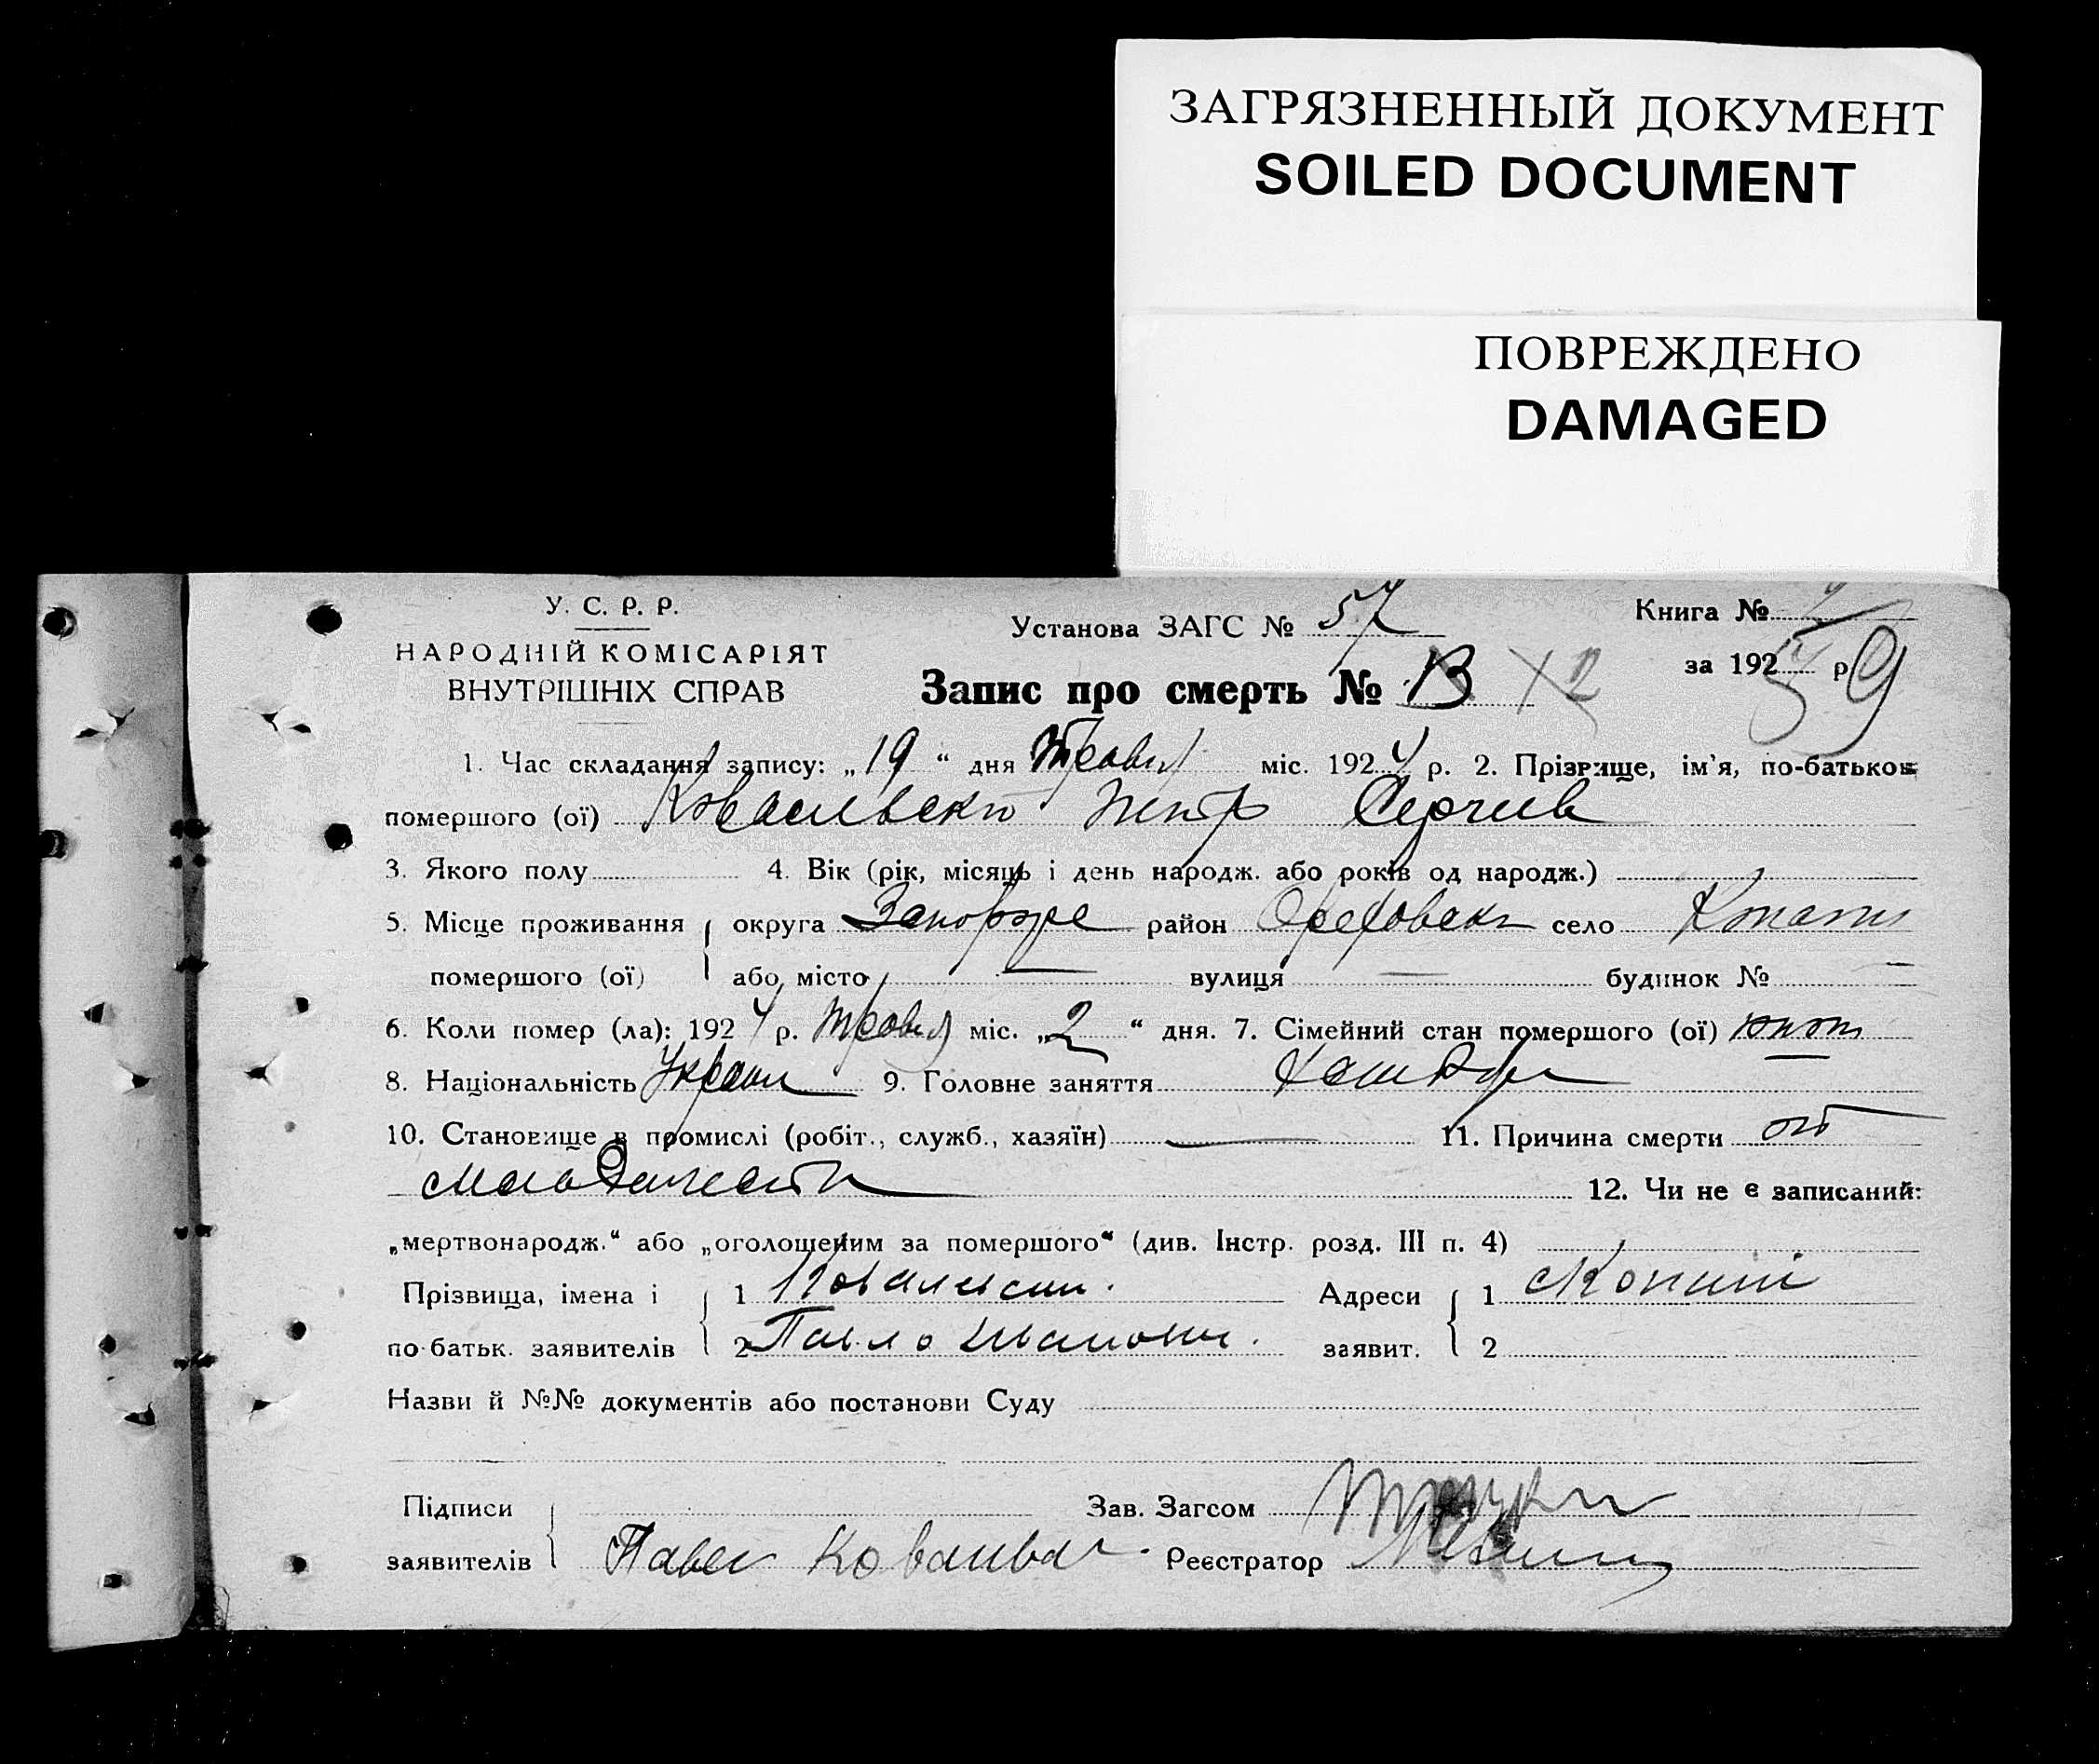 ЗАГРЯЗНЕННЫЙ ДОКУМЕНТ
SOILED DOCUMENT
ПОВРЕЖДЕНО
DAMAGED
У. С. Р. Р.
НАРОДНІЙ КОМІСАРІЯТ
ВНУТРІШНІХ СПРАВ
Установа ЗАГС № 57
Книга №
за 192 р 9
Запис про смерть № 13 12
1. Час складання запису: „19“ дня Травня міс. 1924 р. 2. Прізвище, ім'я, по-батькові
помершого (ої) Ковалевски Петр Сергиев
3. Якого полу 4. Вік (рік, місяць і день народж. або років од народж.)
5. Місце проживання округа Запорізке район Ореховски село Копани
помершого (ої) або місто — вулиця — будинок № —
6. Коли помер (ла): 1924 р. Травня міс. „2“ дня. 7. Сімейний стан помершого (ої)
8. Національність Украин 9. Головне заняття
10. Становище в промислі (робіт., служб., хазяїн) — 11. Причина смерти от
12. Чи не є записаний:
„мертвонародж.“ або „оголошеним за помершого“ (див. Інстр. розд. III п. 4)
Прізвища, імена і 1 Ковалевский. Адреси 1 Копани
по-батьк. заявителів 2 Павло Иванович. заявит. 2
Назви й №№ документів або постанови Суду
Підписи Зав. Загсом
заявителів Павел Ковалевс Реєстратор